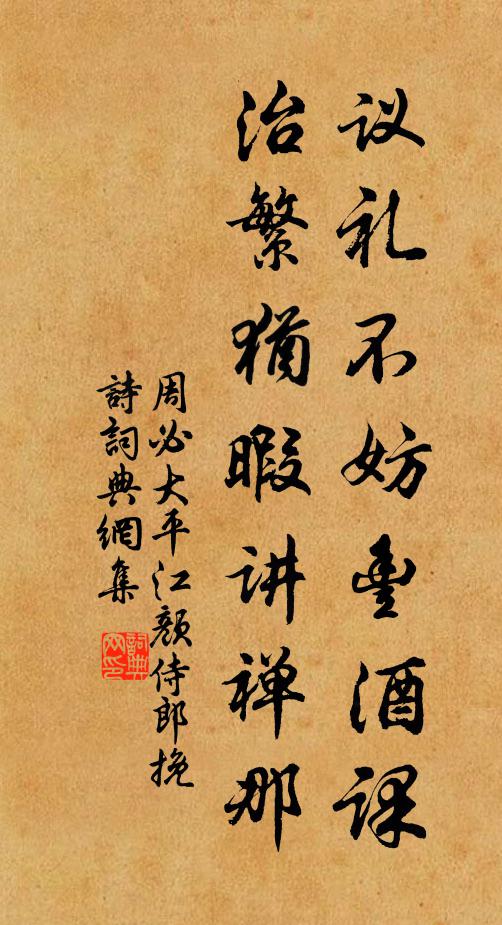 议礼不妨丰酒课
治繁犹暇讲禅那
周必大平江颜侍郎挽
詩詞典網集
詞典网印